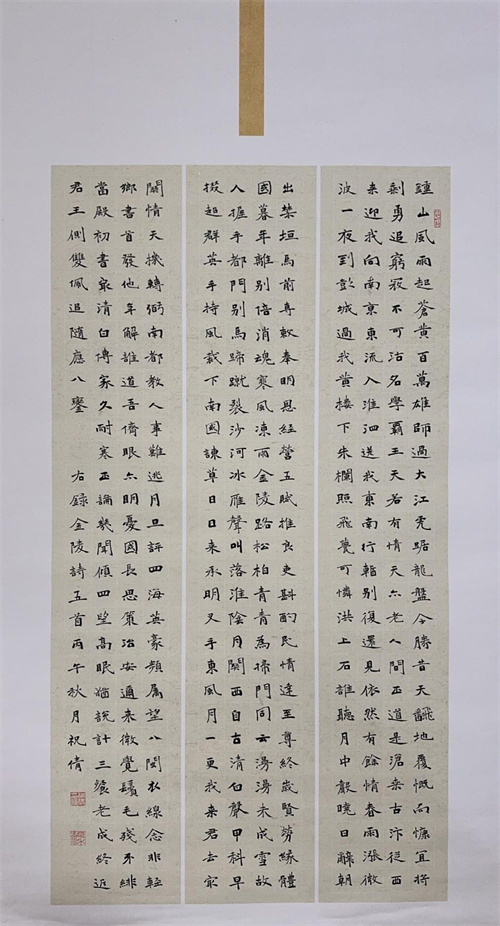 鍾山風雨起蒼黃百萬雄師過大江虎踞龍盤今勝昔天翻地覆慨而慷宜將
剩勇追窮寇不可沽名學霸王天若有情天亦老人間正道是滄桑古汴從西
来迎我向南京東流入淮泗送我東南行暫別復還見依然有餘情春雨漲微
波一夜到彭城過我黃樓下朱欄照飛甍可憐洪上石誰聽月中聲曉日辭朝
出禁垣馬前專敕奉明恩經營五賦推良吏斟酌民情達至尊終歲賢勞緣體
國暮年離別倍消魂寒風凍雨金陵路松柏青青為掃門同云湯湯未成雪故
人握手都門別馬蹄蹴裂沙河冰雁聲叫落淮陰月關西自古清白聲甲科早
掇超群英手持風裁下南國諫草日日来承明又手東風月一更我来君去宛
關情天機轉弼南都教人事難逃月旦評四海英豪頻屬望八閩衣線念非輕
鄉書首發他年解誰道吾儕眼亦明憂國長思策治安通来微覺鬢毛殘牙緋
當殿初書最清白傳家久耐寒正論熟聞傾四坐高眠猶說計三飧老成終近
君王側雙佩追隨應八鑾 右錄金陵詩五首丙午秋月祝倩